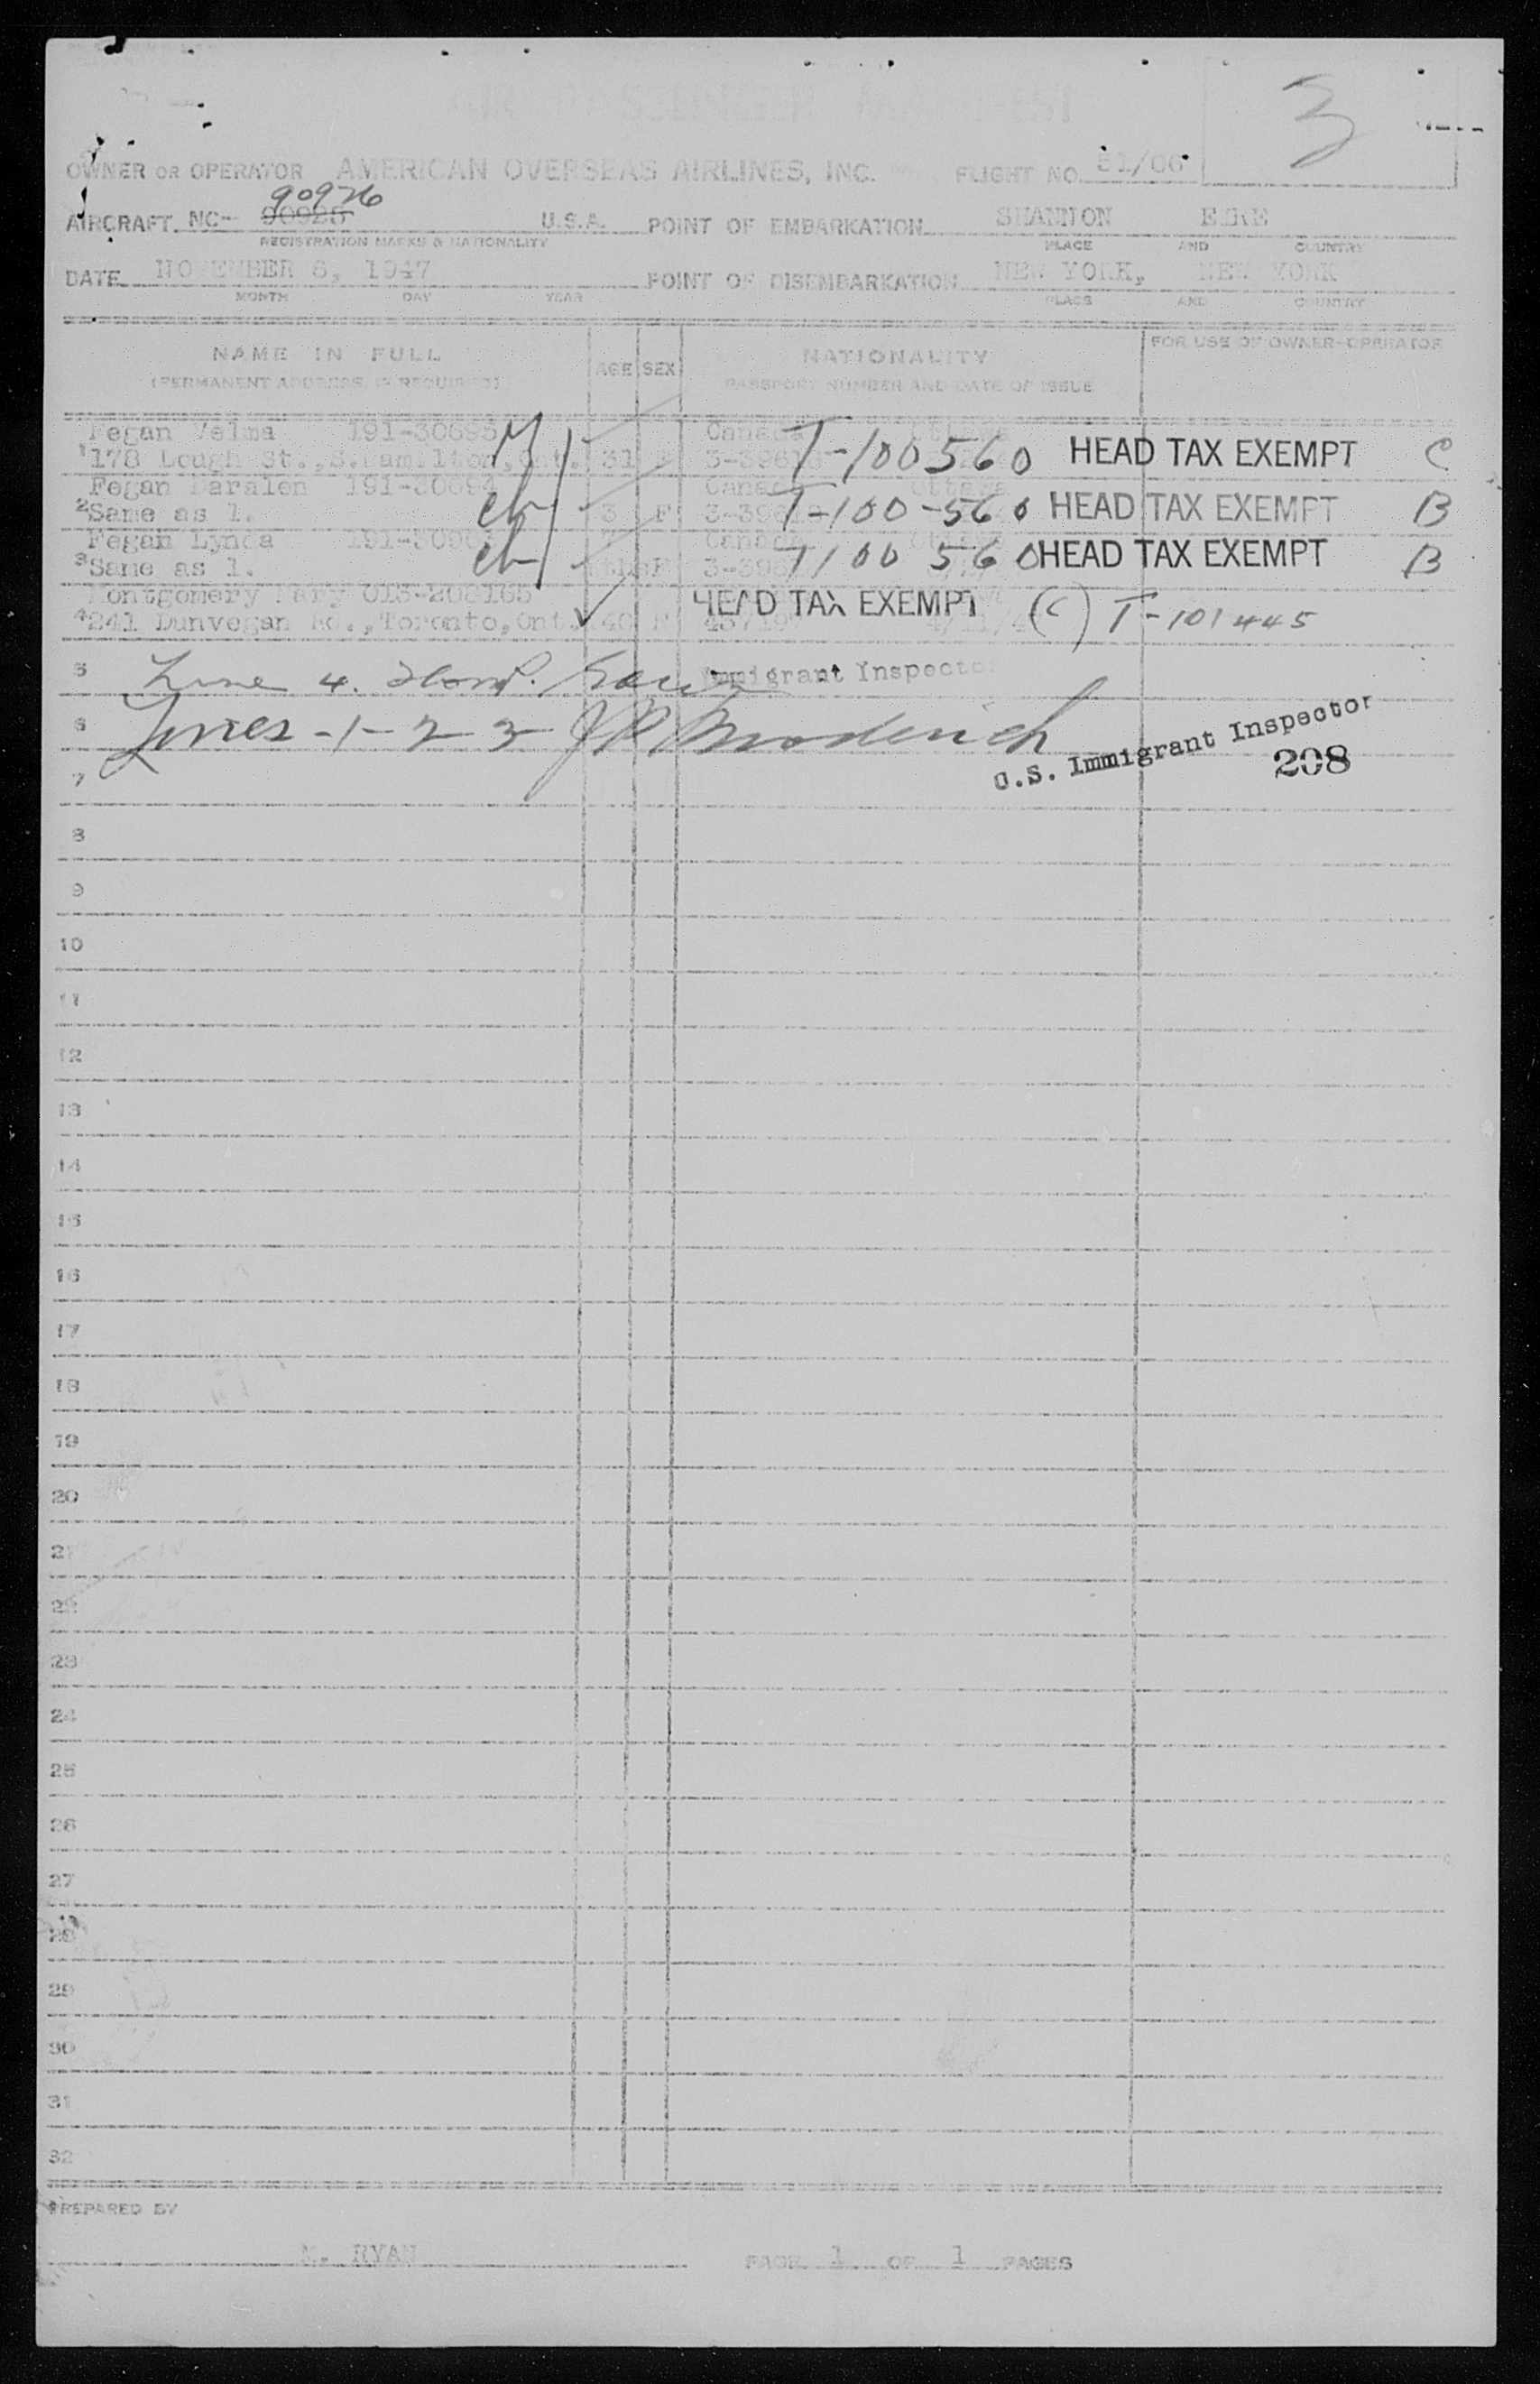 AIR PASSENGER MANIFEST
3
OWNER OR OPERATOR AMERICAN OVERSEAS AIRLINES, INC. FLIGHT NO. 51/06
90926
AIRCRAFT NC- 90920 U.S.A. POINT OF EMBARKATION SHANNON EIRE
REGISTRATION MARKS & NATIONALITY PLACE AND COUNTRY
DATE NOVEMBER 8, 1947 POINT OF DISEMBARKATION NEW YORK, NEW YORK
MONTH DAY YEAR PLACE AND COUNTRY
NAME IN FULL AGE SEX NATIONALITY FOR USE OF OWNER-OPERATOR
(PERMANENT ADDRESS IF REQUIRED) PASSPORT NUMBER AND DATE OF ISSUE
Fegan Velma 191-30695 M Canada Ottawa
1 178 Lough St., S. Hamilton, Ont. 31 F T-100560 HEAD TAX EXEMPT C
Fegan Daralen 191-30694 Canada Ottawa
2 Same as 1. ch 3 F T-100-560 HEAD TAX EXEMPT B
Fegan Lynda Canada
3 Same as 1. ch F T100 560 HEAD TAX EXEMPT B
Montgomery Mary 013-208165 HEAD TAX EXEMPT (C) T-101445
4 241 Dunvegan Rd., Toronto, Ont. 40 F
5 Line 4. Immigrant Inspector
6 Lines -1-2 3
U.S. Immigrant Inspector
208
7
8
9
10
11
12
13
14
15
16
17
18
19
20
21
22
23
24
25
26
27
28
29
30
31
32
PREPARED BY
M. RYAN PAGE 1 OF 1 PAGES